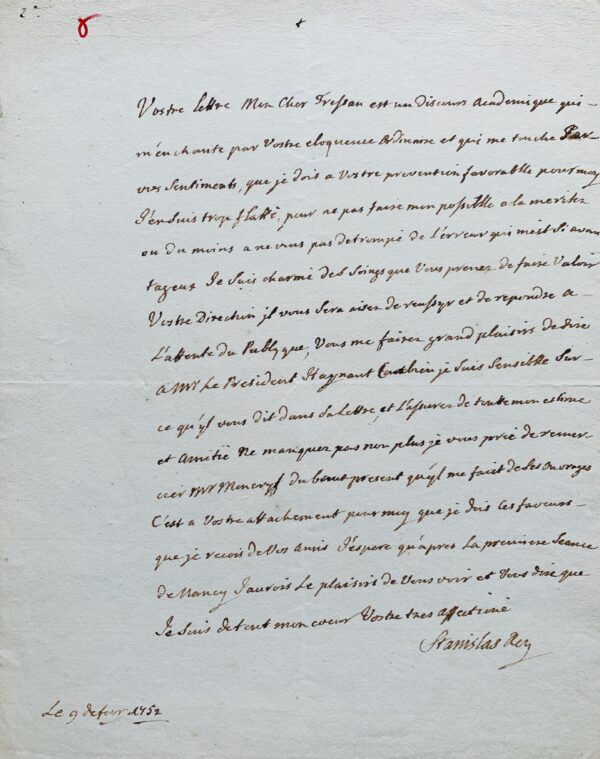 2e
8
Vostre lettre Mon Cher Tressan est un discours academique qui
m'enchante par Vostre eloquence ordinaire et qui me touche Par
vos sentiments, que je dois a Vostre prevention favorable pour moy
J'en suis trop flatté, pour ne pas faire mon possible a la meriter
ou du moins a ne vous pas detrompé de l'erreur qui m'est si avan
tageux Je suis charmé des soings que Vous prenez de faire Valoir
Vostre Direction jl vous sera aisez de reussyr et de repondre a
L'attente du Publyque, Vous me fairez grand plaisirs de dire
a Mr Le President Haynaut Combien je suis sensible sur
ce qu'yl vous dit dans sa Lettre, et L'assurer de toute mon estime
et amitié Ne manquez pas non plus je vous prie de remer
cier Mr Moncryf du beaut present qu'yl me fait de ses ouvrages
C'est a Vostre attachement pour moy que je dois ces faveurs
que je recois de Vos amis J'espere qu'apres La premiere seance
de Nancy J'aurois Le plaisirs de Vous voir et Vous dire que
Je suis de tout mon coeur Vostre tres affectioné
Stanislas Roy
Le 9 de fevr 1752